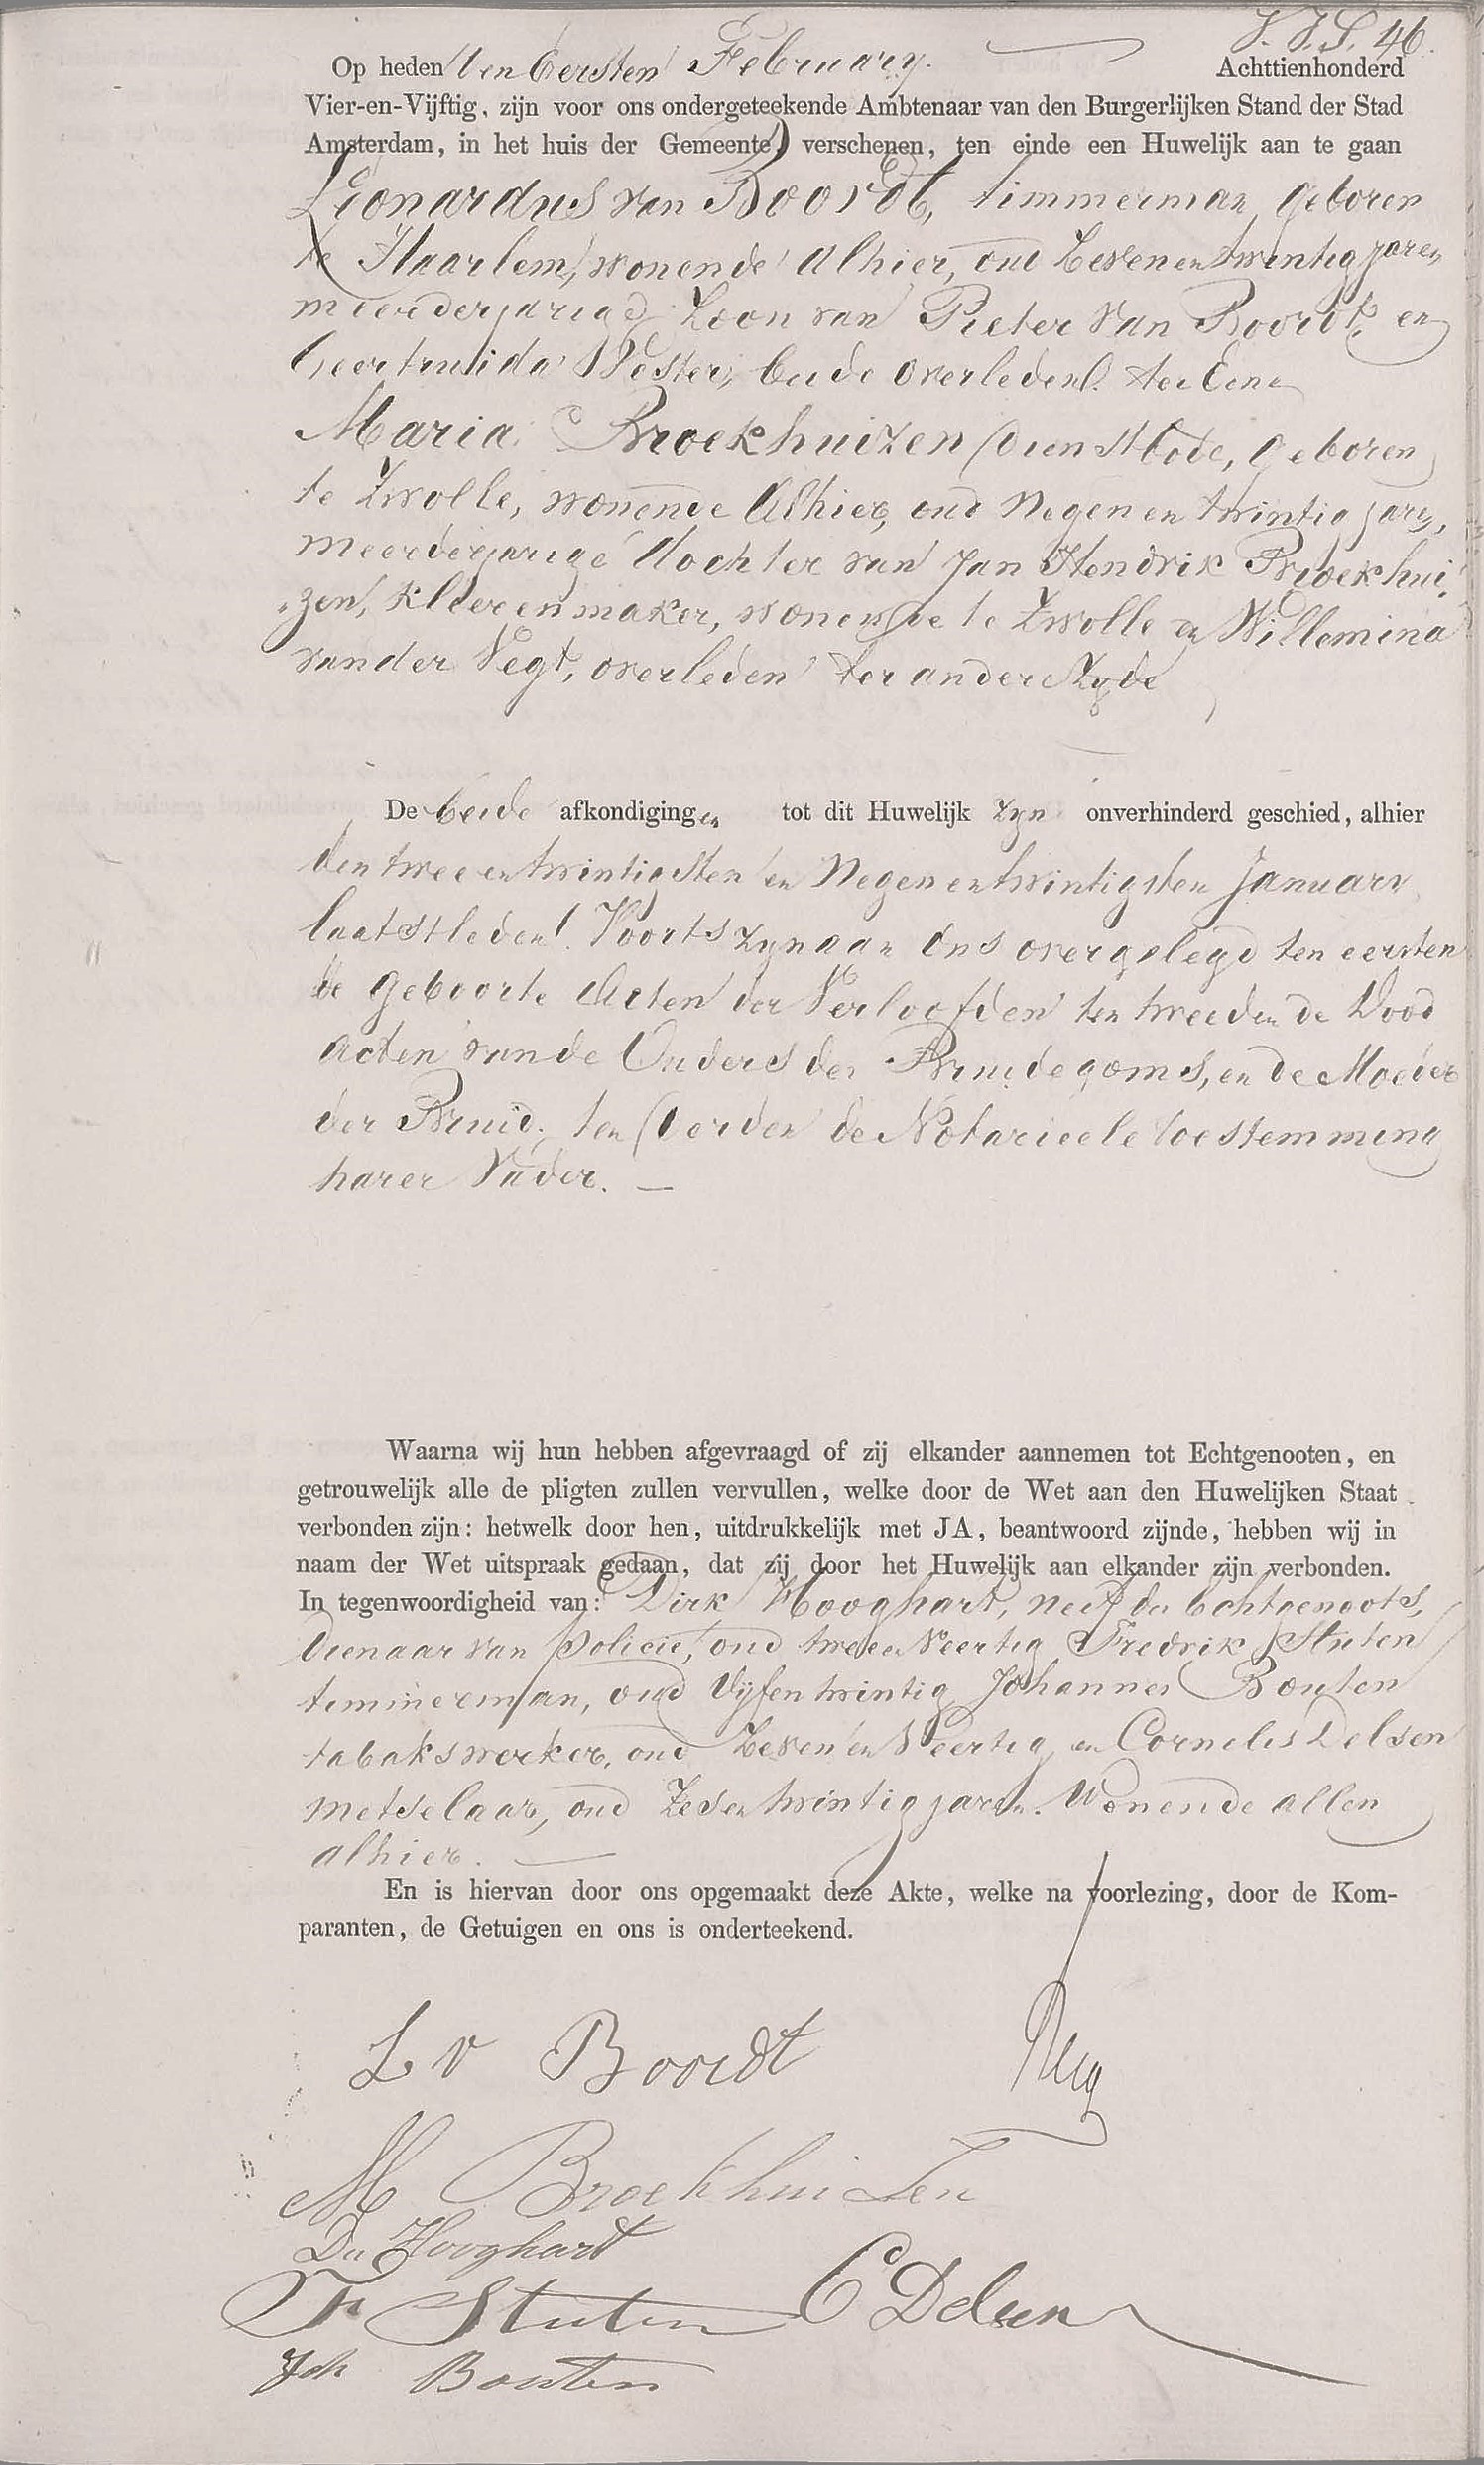 46.
Op heden den Eersten February. Achttienhonderd
Vier-en-Vijftig, zijn voor ons ondergeteekende Ambtenaar van den Burgerlijken Stand der Stad
Amsterdam, in het huis der Gemeente, verschenen, ten einde een Huwelijk aan te gaan
Leonardus van Boordt, timmerman, geboren
te Haarlem, wonende alhier, oud Zevenentwintig jaren,
meerderjarige Zoon van Pieter van Boordt, en
Geertruida Wester, beide overleden. ter Eene
Maria Broekhuizen, dienstbode, geboren
te Zwolle, wonende alhier, oud Negenentwintig jaren,
meerderjarige dochter van Jan Hendrik Broekhui-
-zen, kleerenmaker, wonende te Zwolle en Willemina
van der Vegt, overleden ter andere Zyde
De beide afkondigingen tot dit Huwelijk zyn onverhinderd geschied, alhier
den tweeentwintigsten en Negenentwintigsten January
laatstleden. Voorts zyn aan ons overgelegd ten eersten
de geboorte Acten der Verloofden ten tweeden de Dood
acten van de Ouders des Bruidegoms, en de Moeder
der Bruid. ten derden de Notarieele toestemming
harer Vader. —
Waarna wij hun hebben afgevraagd of zij elkander aannemen tot Echtgenooten, en
getrouwelijk alle de pligten zullen vervullen, welke door de Wet aan den Huwelijken Staat
verbonden zijn: hetwelk door hen, uitdrukkelijk met JA, beantwoord zijnde, hebben wij in
naam der Wet uitspraak gedaan, dat zij door het Huwelijk aan elkander zijn verbonden.
In tegenwoordigheid van: Dirk Hooghart, neef der Echtgenoots,
dienaar van Policie, oud tweeenVeertig Fredrik Stuten
timmerman, oud Vijfentwintig Johannes Bouten
tabakswerker, oud Zeven en Veertig en Cornelis Delsen
metselaar, oud Zesentwintig jaren. Wonende allen
alhier. —
En is hiervan door ons opgemaakt deze Akte, welke na voorlezing, door de Kom-
paranten, de Getuigen en ons is onderteekend.
L v Boordt
M Broekhuizen
Dk Hooghart
F Stuten C Delsen
Joh Bouten